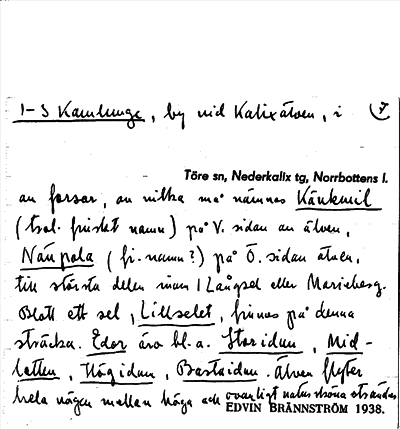 1-3 Kamlunge, by vid Kalixälven, i 7
Töre sn, Nederkalix tg, Norrbottens l.
av forsar, av vilka må nämnas
(trol. finskt namn) på V. sidan av älven,
Näupola (fi. namn?) på Ö. sidan älven,
till största delen inom Långsel eller Marieberg.
Blott ett sel, Lillselet, finnes på denna
sträcka. Edor äro bl.a. Storidun, Mid-
latten, Högidun, Bastaidun. Älven flyter
hela vägen mellan höga och ovanligt natursköna stränder
EDVIN BRÄNNSTRÖM 1938.